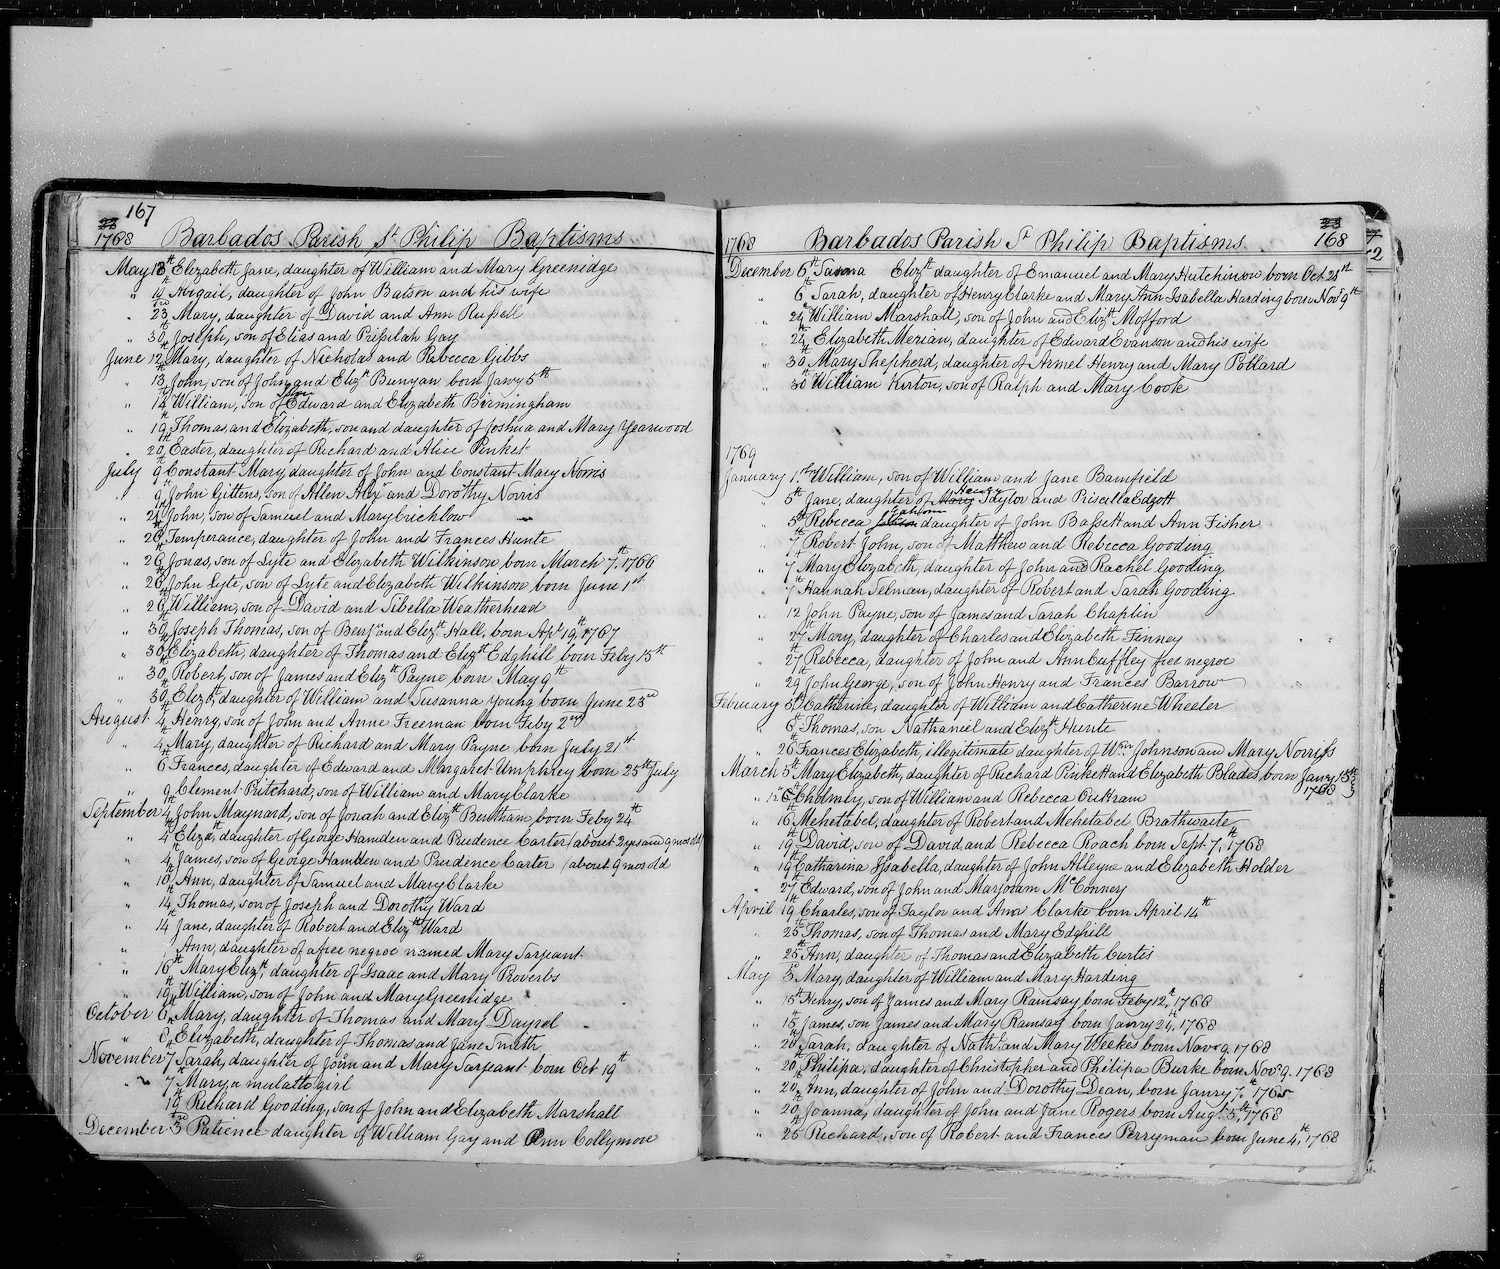 167
1768 Barbados Parish St Philip Baptisms
May 13th Elizabeth Jane, daughter of William and Mary Greenidge
" 14th Abigail, daughter of John Batson and his wife
" 23rd Mary, daughter of David and Ann Russell
" 30th Joseph, son of Elias and Gay
June 12th Mary, daughter of Nicholas and Rebecca Gibbs
" 13th John, son of John and Elizth Bunyan born Janry 5th
" 14th William, son of Edward and Elizabeth Birmingham
" 19th Thomas and Elizabeth, son and daughter of Joshua and Mary Yearwood
" 20th Easter, daughter of Richard and Alice Pinket
July 9th Constant Mary, daughter of John and Constant Mary Norris
" 9th John Gittens, son of Allen Alexr and Dorothy Norris
" 24th John, son of Samuel and Mary Crichlow
" 26th Temperance, daughter of John and Frances Hunte
" 26th Jonas, son of Lyte and Elizabeth Wilkinson, born March 7th, 1766
" 26th John Lyte, son of Lyte and Elizabeth Wilkinson born June 1st
" 26th William, son of David and Sibella Weatherhead
" 30th Joseph Thomas, son of Benjn and Elizth Hall, born Apl 19th 1767
" 30th Elizabeth, daughter of Thomas and Elizth Edghill born Feby 15th
" 30th Robert, son of James and Elizth Payne born May 9th
" 30th Elizth, daughter of William and Susanna Young born June 23rd
August 4th Henry, son of John and Anne Freeman born Feby 2nd
" 4th Mary, daughter of Richard and Mary Payne born July 21st
" 6th Frances, daughter of Edward and Margaret Umphrey born 25th July
" 9th Clement Pritchard, son of William and Mary Clarke
September 4th John Maynard, son of Josiah and Elizth Bentham born Feby 24th
" 4th Elizth, daughter of George Hamden and Prudence Carter (about 2 yrs and 9 mos old)
" 4th James, son of George Hamden and Prudence Carter (about 9 mos old
" 10th Ann, daughter of Samuel and Mary Clarke
" 14th Thomas, son of Joseph and Dorothy Ward
" 14th Jane, daughter of Robert and Elizth Ward
" Ann, daughter of a free negroe named Mary Sarjeant
" 16th Mary Elizth, daughter of Isaac and Mary Proverbs
" 19th William, son of John and Mary Greenidge
October 6th Mary, daughter of Thomas and Mary Dayrel
" 8th Elizabeth, daughter of Thomas and Jane Smith
November 7th Sarah, daughter of John and Mary Sarjeant born Oct 19th
" 7th Mary a mulatto girl
" 14th Richard Gooding, son of John and Elizabeth Marshall
December 3rd Patience daughter of William Gay and Ann Collymore
168
1768 Barbados Parish St Philip Baptisms
December 6th Elizth daughter of Emanuel and Mary Hutchinson born Oct 28th
" 6th Sarah, daughter of Henry Clarke and Mary Ann Isabella Harding born Novr 9th
" 24th William Marshall, son of John and Elizth Mofford
" 24th Elizabeth Merian, daughter of Edward Evanson and his wife
" 30th Mary Shepherd, daughter of Armel Henry and Mary Pollard
" 30th William Kirton, son of Ralph and Mary Cook
1769
January 1st William, son of William and Jane Bamfield
" 5th Jane, daughter of Henry Taylor and Priscilla Edgott
" 5th Rebecca daughter of John Bassett and Ann Fisher
" 7th Robert John, son of Matthew and Rebecca Gooding
" 7th Mary Elizabeth, daughter of John and Rachel Gooding
" 7th Hannah Selman, daughter of Robert and Sarah Gooding
" 12 John Payne, son of James and Sarah Chaplin
" 27th Mary, daughter of Charles and Elizabeth Finney
" 27th Rebecca, daughter of John and Ann Cuffley free negroe
" 29th John George, son of John Henry and Frances Barrow
February 5th Catherine, daughter of William and Catherine Wheeler
" 6th Thomas, son Nathaniel and Elizth Hunte
" 26th Frances Elizabeth, illegitimate daughter of Wm Johnson and Mary Norriss
March 5th Mary Elizabeth, daughter of Richard Pinkett and Elizabeth Blades, born Janry 18th 1768
" 12th Cholmly, son of William and Rebecca Outtram
" 16th Mehetabel, daughter of Robert and Mehetabel Brathwaite
" 19th David, son of David and Rebecca Roach born Sept. 7th, 1768
" 19th Catharina Issabella, daughter of John Alleyne and Elizabeth Holder
" 27th Edward, son of John and Marjoram McConney
April 19th Charles, son of Taylor and Ann Clarke born April 14th
" 25th Thomas, son of Thomas and Mary Edghill
" 25th Ann, daughter of Thomas and Elizabeth Curtis
May 5th Mary, daughter of William and Mary Harding
" 15th Henry, son of James and Mary Ramsay born Feby 12th, 1766
" 15th James, son James and Mary Ramsay born Janry 24th, 1768
" 20th Sarah, daughter of Nathl and Mary Weekes born Novr 9. 1768
" 20th Philipa, daughter of Christopher and Philipa Burke born Novr 9. 1768
" 20th Ann, daughter of John and Dorothy Dean, born Janry 7th 1765
" 20th Joanna, daughter of John and Jane Rogers born Augt 5th, 1768
" 25th Richard, son of Robert and Frances Perryman born June 4th, 1768